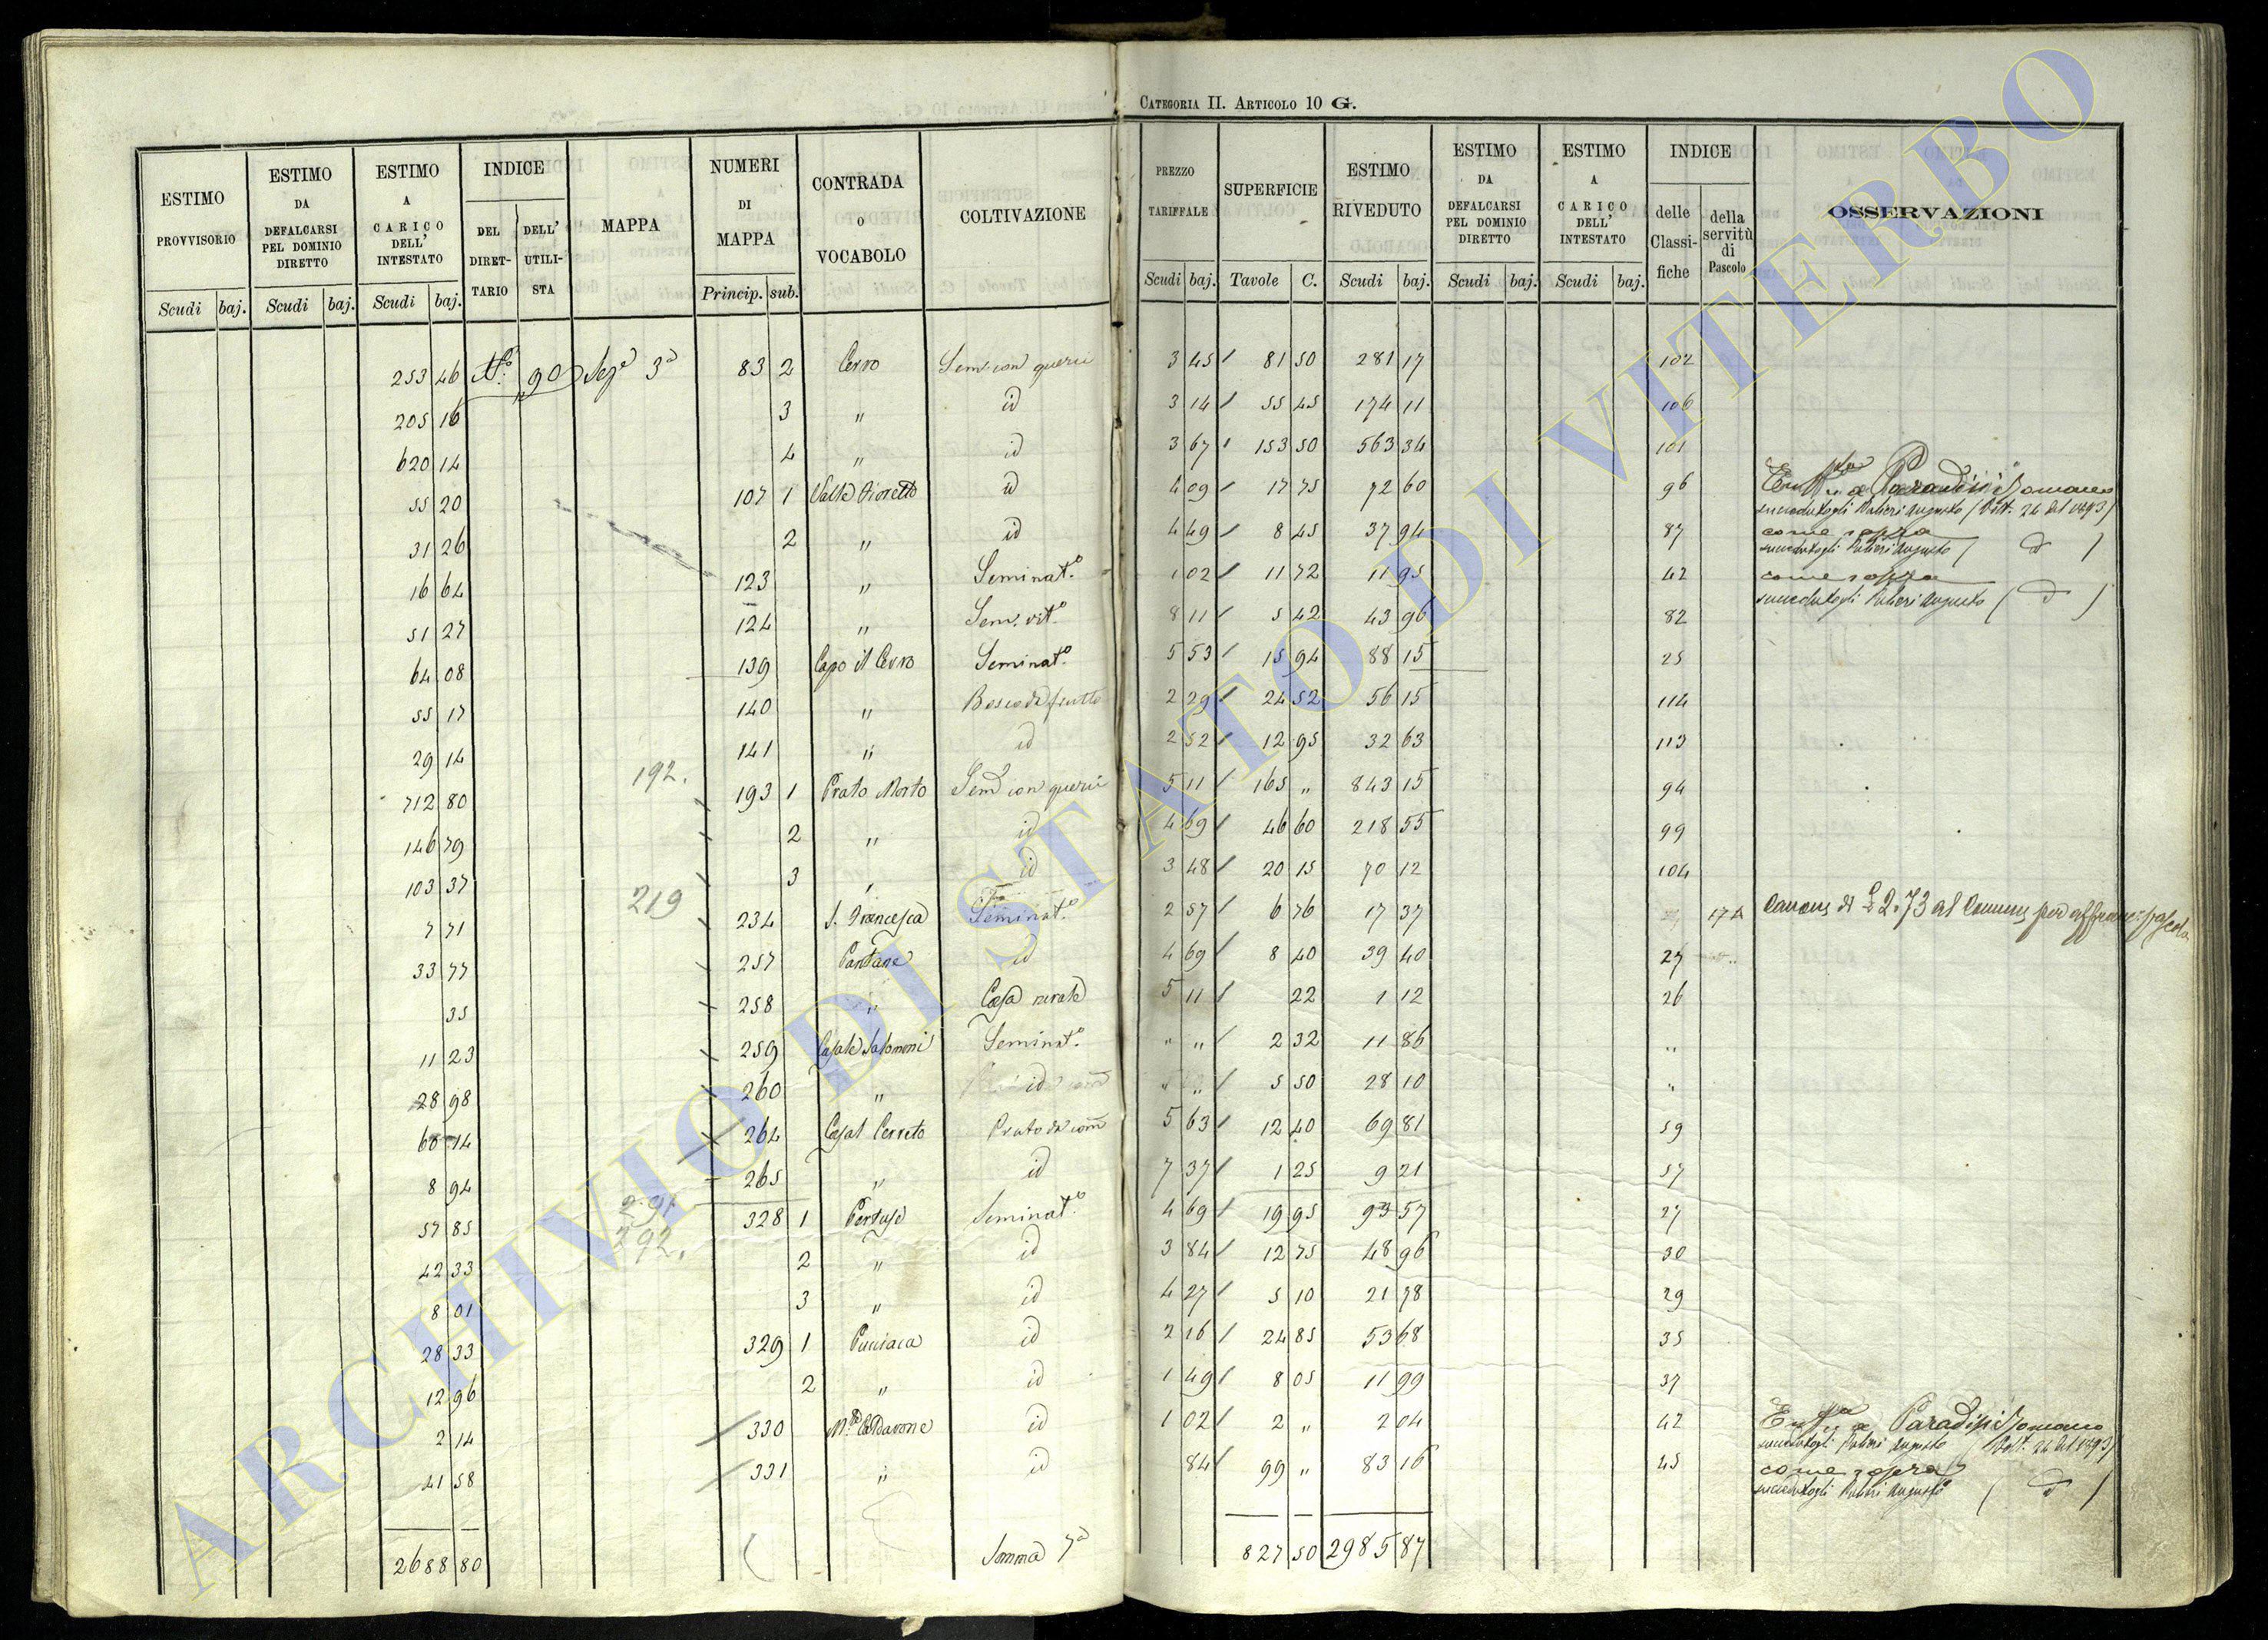 CATEGORIA II. ARTICOLO 10 G.
ESTIMO PROVVISORIO Scudi baj.
ESTIMO DA DEFALCARSI PEL DOMINIO DIRETTO Scudi baj.
ESTIMO A CARICO DELL' INTESTATO Scudi baj.
INDICE DEL DIRETTARIO DELL' UTILISTA
MAPPA
NUMERI DI MAPPA Princip. sub.
CONTRADA O VOCABOLO
COLTIVAZIONE
PREZZO TARIFFALE Scudi baj.
SUPERFICIE Tavole C.
ESTIMO RIVEDUTO Scudi baj.
ESTIMO DA DEFALCARSI PEL DOMINIO DIRETTO Scudi baj.
ESTIMO A CARICO DELL' INTESTATO Scudi baj.
INDICE delle Classifiche della servitù di Pascolo
OSSERVAZIONI
253 46 N.° 90 Sez.e 3a 83 2 Cerro Sem. con querci 3 45 81 50 281 17 102
205 16 3 " id 3 14 55 45 174 11 106
620 14 4 " id 3 67 153 50 563 34 101
55 20 107 1 Valle Fioretto id 4 09 17 75 72 60 96 Enf.ta a Paradisi Romano
succedutogli Palieri Augusto (Volt. 26 del 1893)
31 26 2 " id 4 49 8 45 37 94 87 come sopra
succedutogli Palieri Augusto ( d )
16 64 123 " Seminat.o 1 02 11 72 11 95 42 come sopra
succedutogli Palieri Augusto ( d )
51 27 124 " Sem. vit.o 8 11 5 42 43 96 82
64 08 139 Capo il Cerro Seminat.o 5 53 15 94 88 15 25
55 17 140 " Bosco da frutto 2 29 24 52 56 15 114
29 14 141 " id 2 52 12 95 32 63 113
192.
712 80 193 1 Prato Morto Sem. con querci 5 11 165 " 843 15 94
146 79 2 " id 4 69 46 60 218 55 99
103 37 3 " id 3 48 20 15 70 12 104
219
7 71 234 S. Francesca Seminat.o 2 57 6 76 17 37 174 Canone di £ 2.73 al Comune per affranc: pascolo
33 77 257 Pantane id 4 69 8 40 39 40 27
35 258 " Casa rurale 5 11 22 1 12 26
11 23 259 Casale Salomoni Seminat.o " " 2 32 11 86 "
28 98 260 " id " " 5 50 28 10 "
60 14 264 Casal Cerreto Prato da com 5 63 12 40 69 81 59
8 94 265 " id 7 37 1 25 9 21 57
291
57 85 328 1 Pertuse Seminat.o 4 69 19 95 93 57 27
292.
42 33 2 " id 3 84 12 75 48 96 30
8 01 3 " id 4 27 5 10 21 78 29
28 33 329 1 Pucciaca id 2 16 24 85 53 68 35
12 96 2 " id 1 49 8 05 11 99 37
2 14 330 id 1 02 2 " 2 04 42 Enf.ta a Paradisi Romano
succedutogli Palieri Augusto (Volt. 26 del 1893)
41 58 331 " id 84 99 " 83 16 45 come sopra
succedutogli Palieri Augusto ( d )
2688 80 Somma 7a 827 50 2985 87
ARCHIVIO DI STATO DI VITERBO